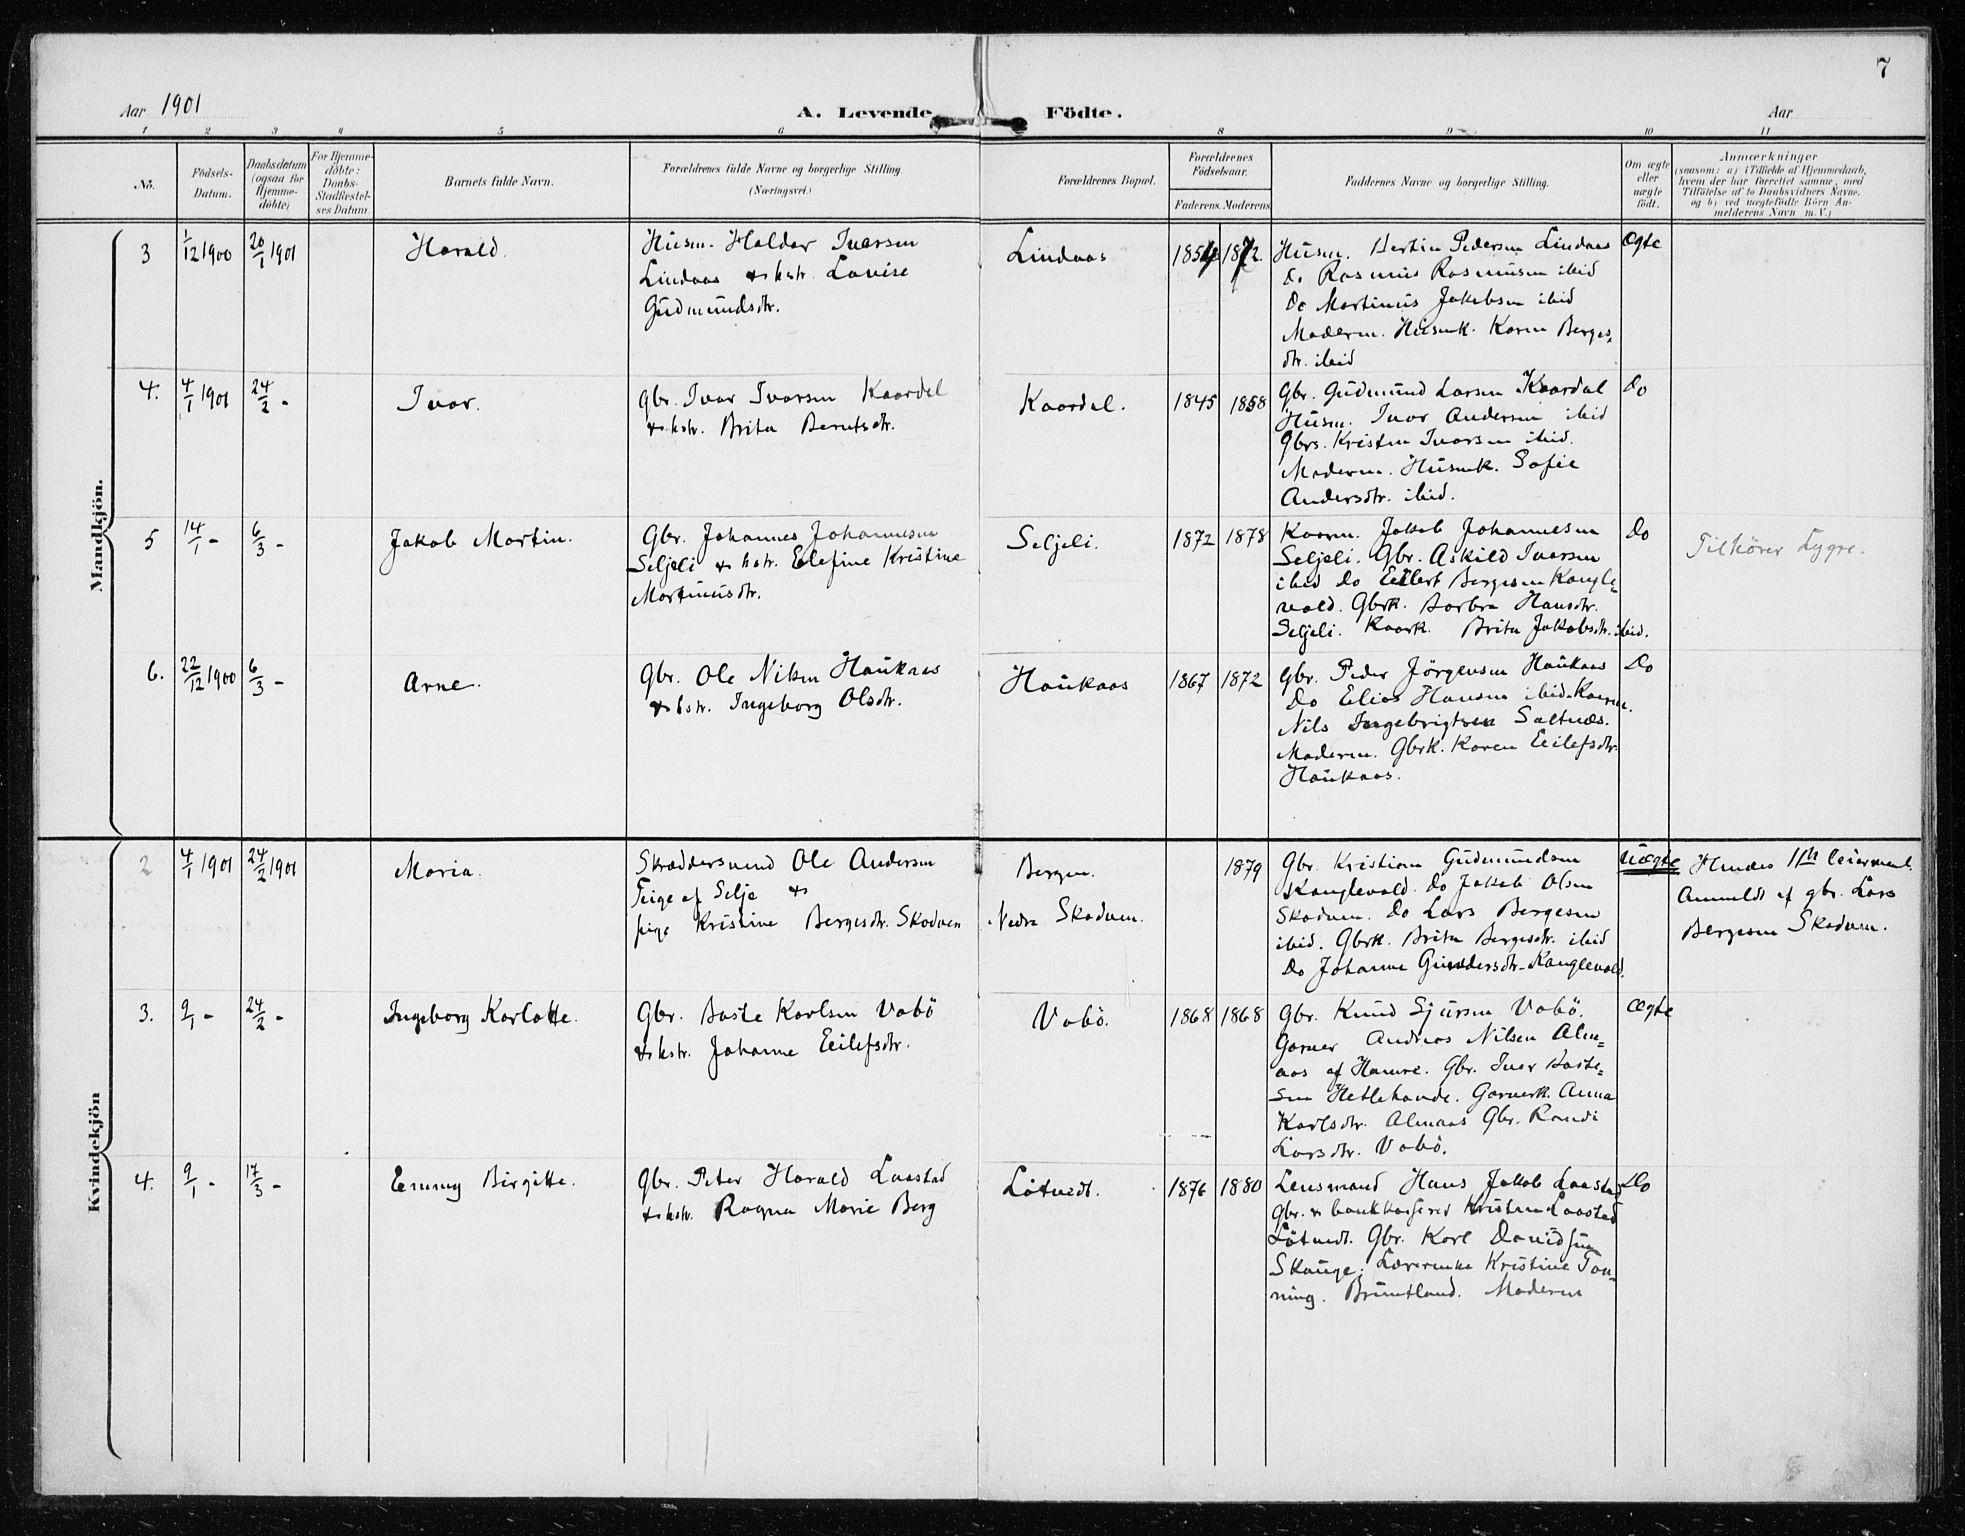 7
Aar 1901
A. Levende
Födte.
Aar
1 2 3 4 5 6 8 9 10 11
No.
Födsels-
Datum.
Daabsdatum
(ogsaa for
Hjemme-
döbte)
For Hjemme-
döbte:
Daabs-
Stadfæstel-
ses Datum.
Barnets fulde Navn.
Forældrenes fulde Navne og borgerlige Stilling
(Næringsvei.)
Forældrenes Bopæl.
Forældrenes
Födselsaar.
Faderens. Moderens.
Faddernes Navne og borgerlige Stilling.
Om ægte
eller
uægte
födt.
Anmærkninger
(saasom: a) i Tilfælde af Hjemmedaab,
hvem der har forrettet samme, med
Tilföielse af to Daabsvidners Navne,
og b) ved uægtefödte Börn An-
melderens Navn m.V.)
Mandkjön.
3
1/12 1900
20/1 1901
Harald.
Husm. Haldor Iversen
Lindaas & hstr. Lovise
Gudmundsdtr.
Lindaas
1854
1872
Husm. Bertin Pedersen Lindaas
Do Rasmus Rasmussen ibid
Do Martinus Jakobsen ibid
Moderen. Husmk. Karen Berges-
dtr. ibid
Ægte
4.
4/1 1901
24/2 -
Ivar.
Gbr. Ivar Ivarsen Kaardal
& hstr. Brita Berntsdtr.
Kaardal.
1845
1858
Gbr. Gudmund Larsen Kaardal
Husm. Ivar Andersen ibid
Gbrs. Kristen Ivarsen ibid.
Moderen. Husmk. Sofie
Andersdtr. ibid.
Do
5
14/1 -
6/3 -
Jakob Martin.
Gbr. Johannes Johannesen
Seljeli & hstr. Elefine Kristine
Martinusdtr.
Seljeli.
1872
1878
Kaarm. Jakob Johannesen
Seljeli. Gbr. Askild Iversen
ibid Do Eilert Bergesen Kangle-
vold. Gbrk. Barbra Hansdtr.
Seljeli. Kaark. Brita Jakobsdtr. ibid.
Do
Tilhører Lygre.
6.
22/12 1900
6/3 -
Arne.
Gbr. Ole Nilsen Haukaas
& hstr. Ingeborg Olsdtr.
Haukaas
1867
1872
Gbr. Peder Jörgensen Haukaas
Do Elias Hansen ibid. Kaarm.
Nils Ingebrigtsen Saltnæs.
Moderen. Gbrk. Karen Eilefsdtr.
Haukaas.
Do
Kvindekjön
2
4/1 1901
24/2 1901
Maria.
Skræddersvend Ole Andersen
Teige af Selje &
pige Kristine Bergesdtr. Skodven
Bergen.
Nedre Skodven.
1879
Gbr. Kristian Gudmundsen
Kanglevold. Do Jakob Olsen
Skodven. Do Lars Bergesen
ibid. Gbrk. Brita Bergesdtr. ibid
Do Johanne Gundersdtr. Kanglevold.
Uægte
Hendes 1ste leiermaal.
Anmeldt af gbr. Lars
Bergesen Skodven.
3.
9/1 -
24/2 -
Ingeborg Karlotte.
Gbr. Baste Karlsen Vabö
& hstr. Johanne Eilefsdtr.
Vabö.
1868
1868
Gbr. Knud Sjursen Vabö.
Garver Andreas Nilsen Alm-
aas af Hamre. Gbr. Iver Baste-
sen Hetlehaude. Garverk. Anna
Karlsdtr. Almaas Gbr. Randi
Larsdtr. Vabö.
Ægte
4.
9/1 -
17/3 -
Emmy Birgitte.
Gbr. Peter Harald Laastad
& hstr. Ragna Marie Berg
Løtvedt.
1876
1880
Lensmand Hans Jakob Laastad
Gbr. & bankkasserer Kristen Laastad
Løtvedt. Gbr. Karl Davidsen
Skauge. Lærerenke Kristine Ton-
ning. Bruntland. Moderen
Do